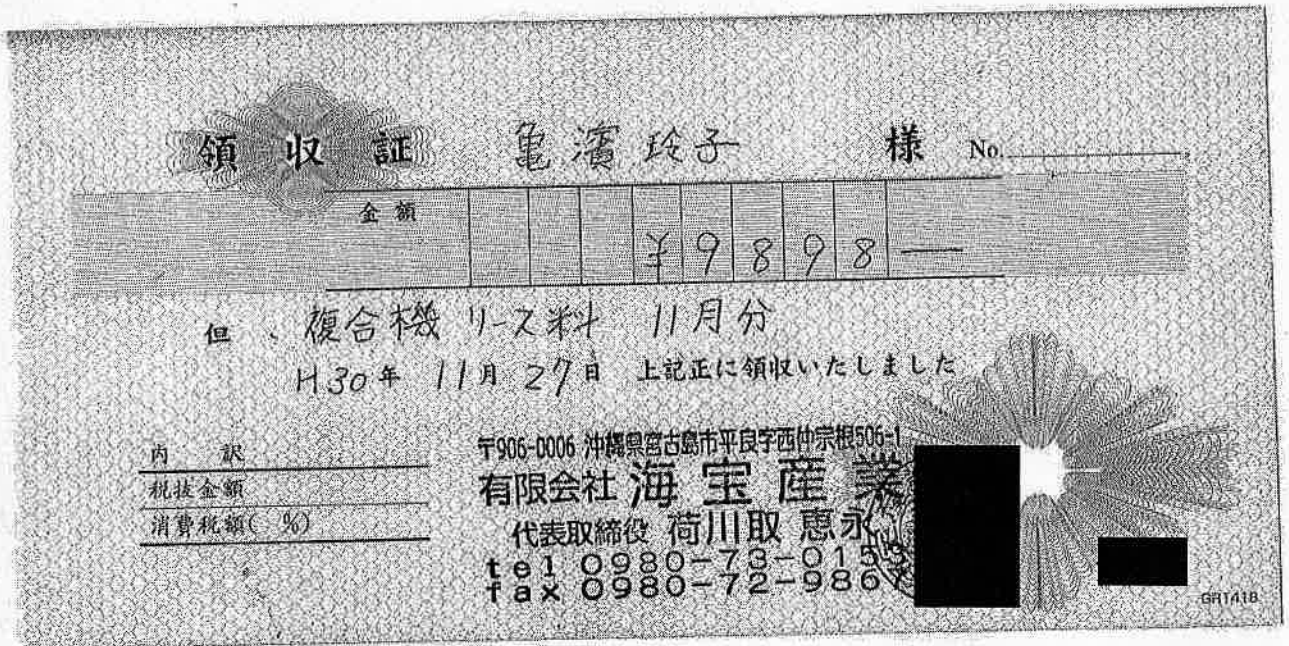 領収証 亀濱玲子 様 No.
金額 ¥9898—
但、複合機リース料 11月分
H30年 11月 27日 上記正に領収いたしました
内訳
税抜金額
消費税額( %)
〒906-0006 沖縄県宮古島市平良字西仲宗根506-1
有限会社 海宝産業
代表取締役 荷川取 恵永
tel 0980-73-015
fax 0980-72-986
GR1418